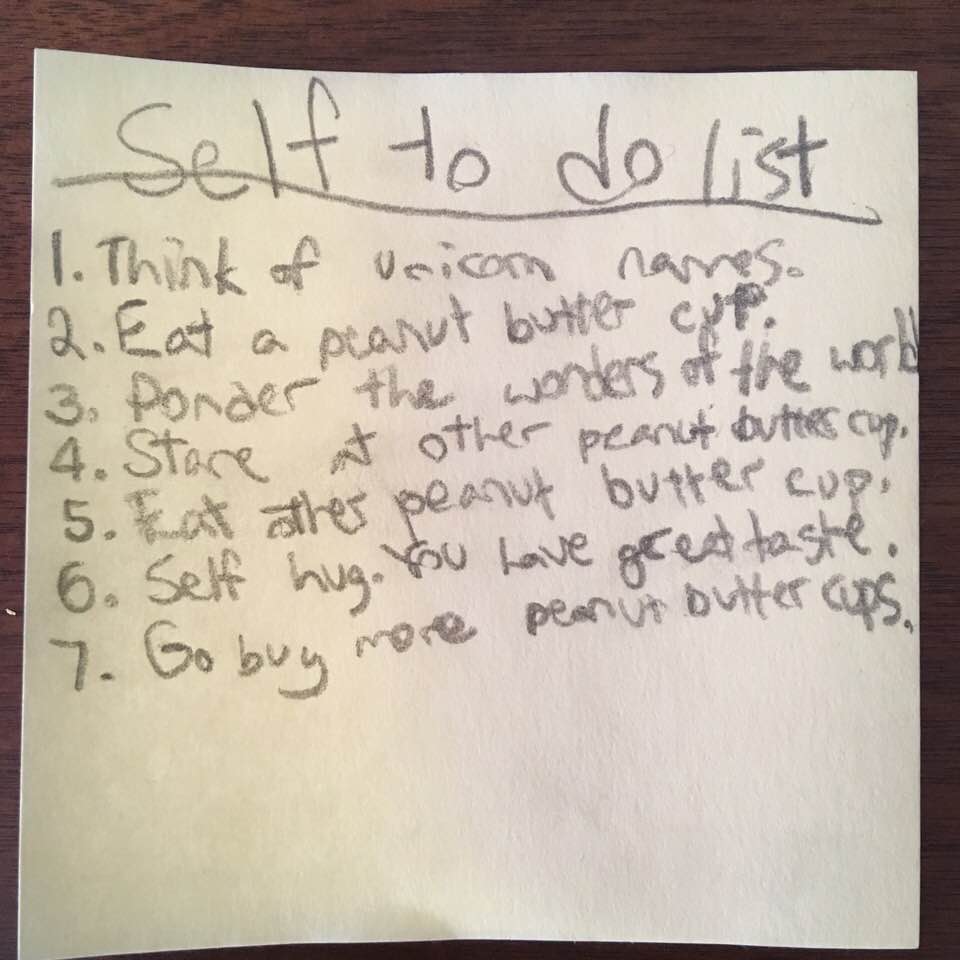 Self to do list
1. Think of unicorn names.
2. Eat a peanut butter cup.
3. Ponder the wonders of the world
4. Stare at other peanut butter cup.
5. Eat other peanut butter cup.
6. Self hug. You have great taste.
7. Go buy more peanut butter cups.